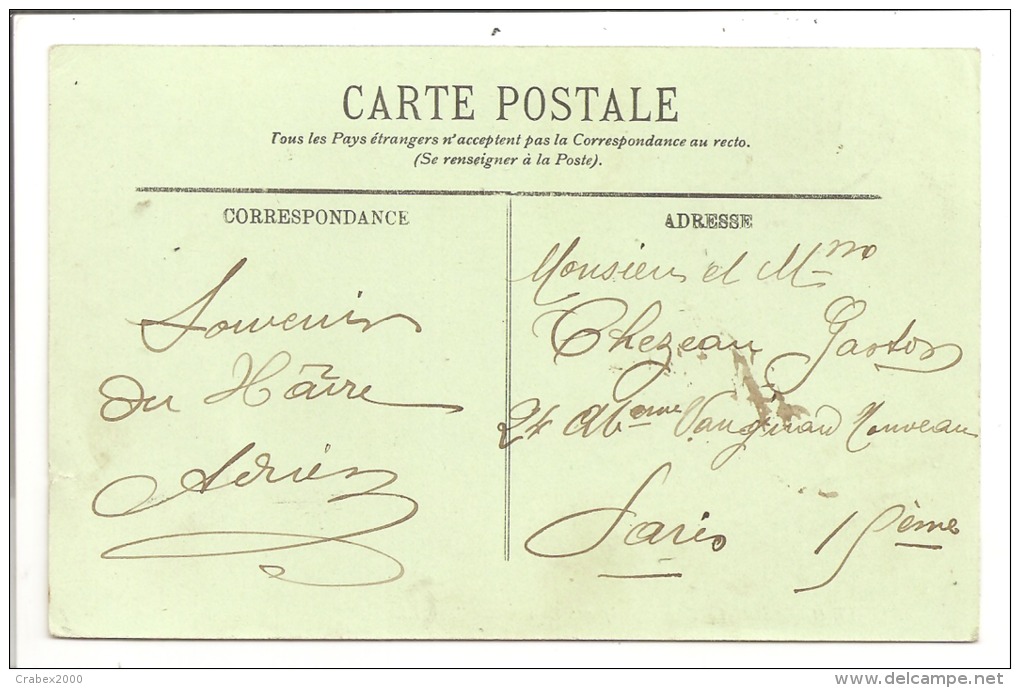 CARTE POSTALE
Tous les Pays étrangers n'acceptent pas la Correspondance au recto.
(Se renseigner à la Poste).
CORRESPONDANCE
Souvenir
du Hâvre
Adrien
ADRESSE
Monsieur et Mme
Chezeau Gaston
24 Vaugirard Nouveau
Paris 15ème
Crabex2000
delcampe.net